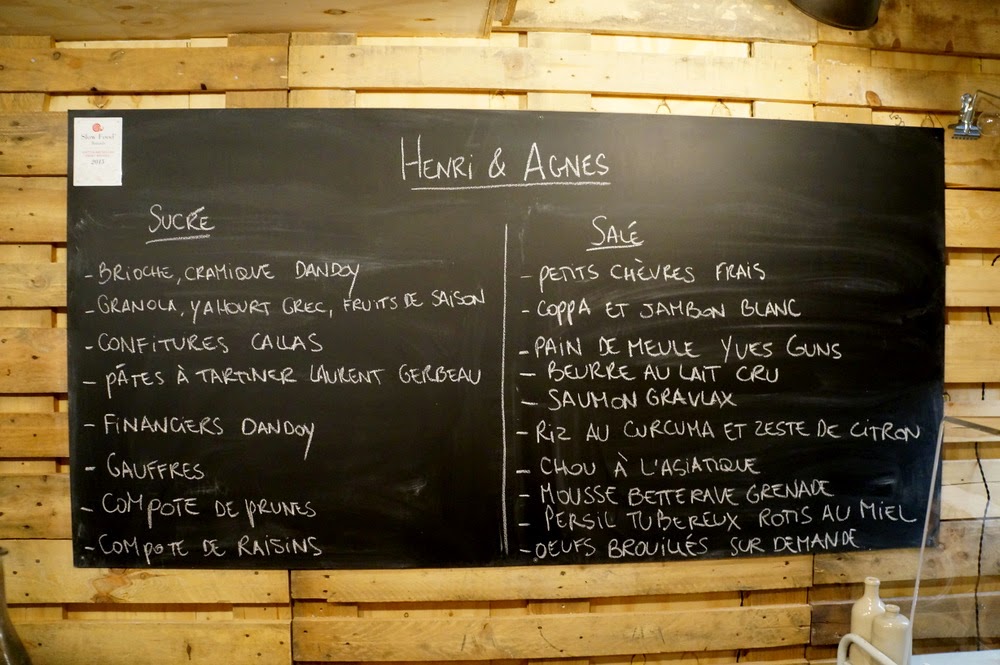 HENRI & AGNES
Slow Food
2015
SUCRÉ
- BRIOCHE, CRAMIQUE DANDOY
- GRANOLA, YAHOURT GREC, FRUITS DE SAISON
- CONFITURES CALLAS
- PÂTES À TARTINER LAURENT GERBEAU
- FINANCIERS DANDOY
- GAUFFRES
- COMPOTE DE PRUNES
- COMPOTE DE RAISINS
SALÉ
- PETITS CHÈVRES FRAIS
- COPPA ET JAMBON BLANC
- PAIN DE MEULE YVES GUNS
- BEURRE AU LAIT CRU
- SAUMON GRAVLAX
- RIZ AU CURCUMA ET ZESTE DE CITRON
- CHOU À L'ASIATIQUE
- MOUSSE BETTERAVE GRENADE
- PERSIL TUBEREUX ROTIS AU MIEL
- OEUFS BROUILLÉS SUR DEMANDE